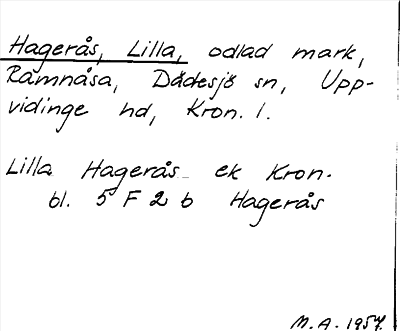 Hagerås, Lilla, odlad mark,
Ramnåsa, Dädesjö sn, Upp-
vidinge hd, Kron. l.
Lilla Hagerås ek Kron.
bl. 5 F 2 b Hagerås
M.A. 1957.